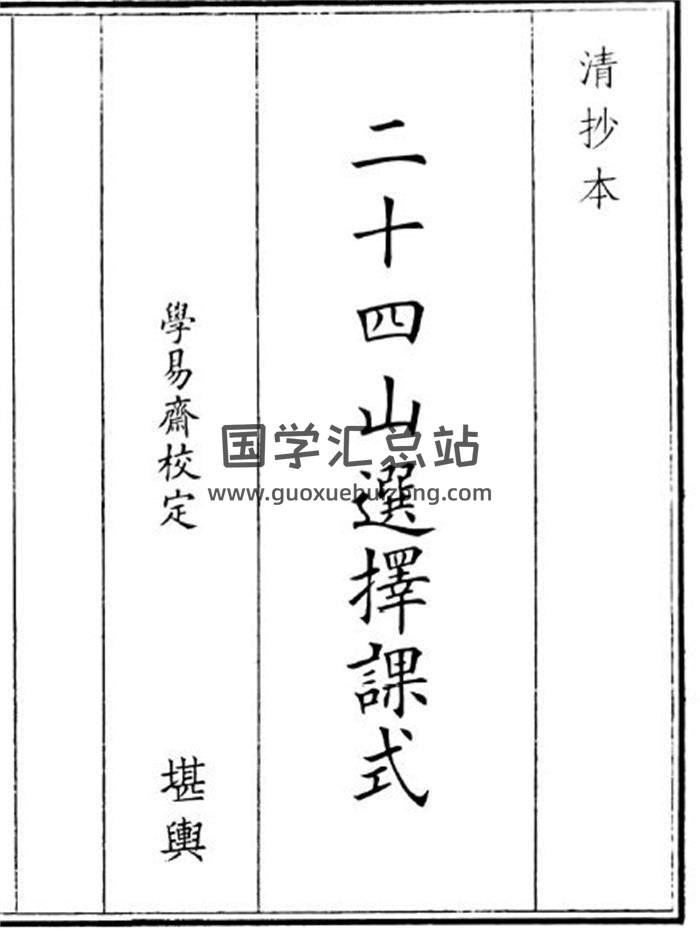 清抄本
二十四山選擇課式
學易齋校定
堪輿
国学汇总站
www.guoxuehuizong.com